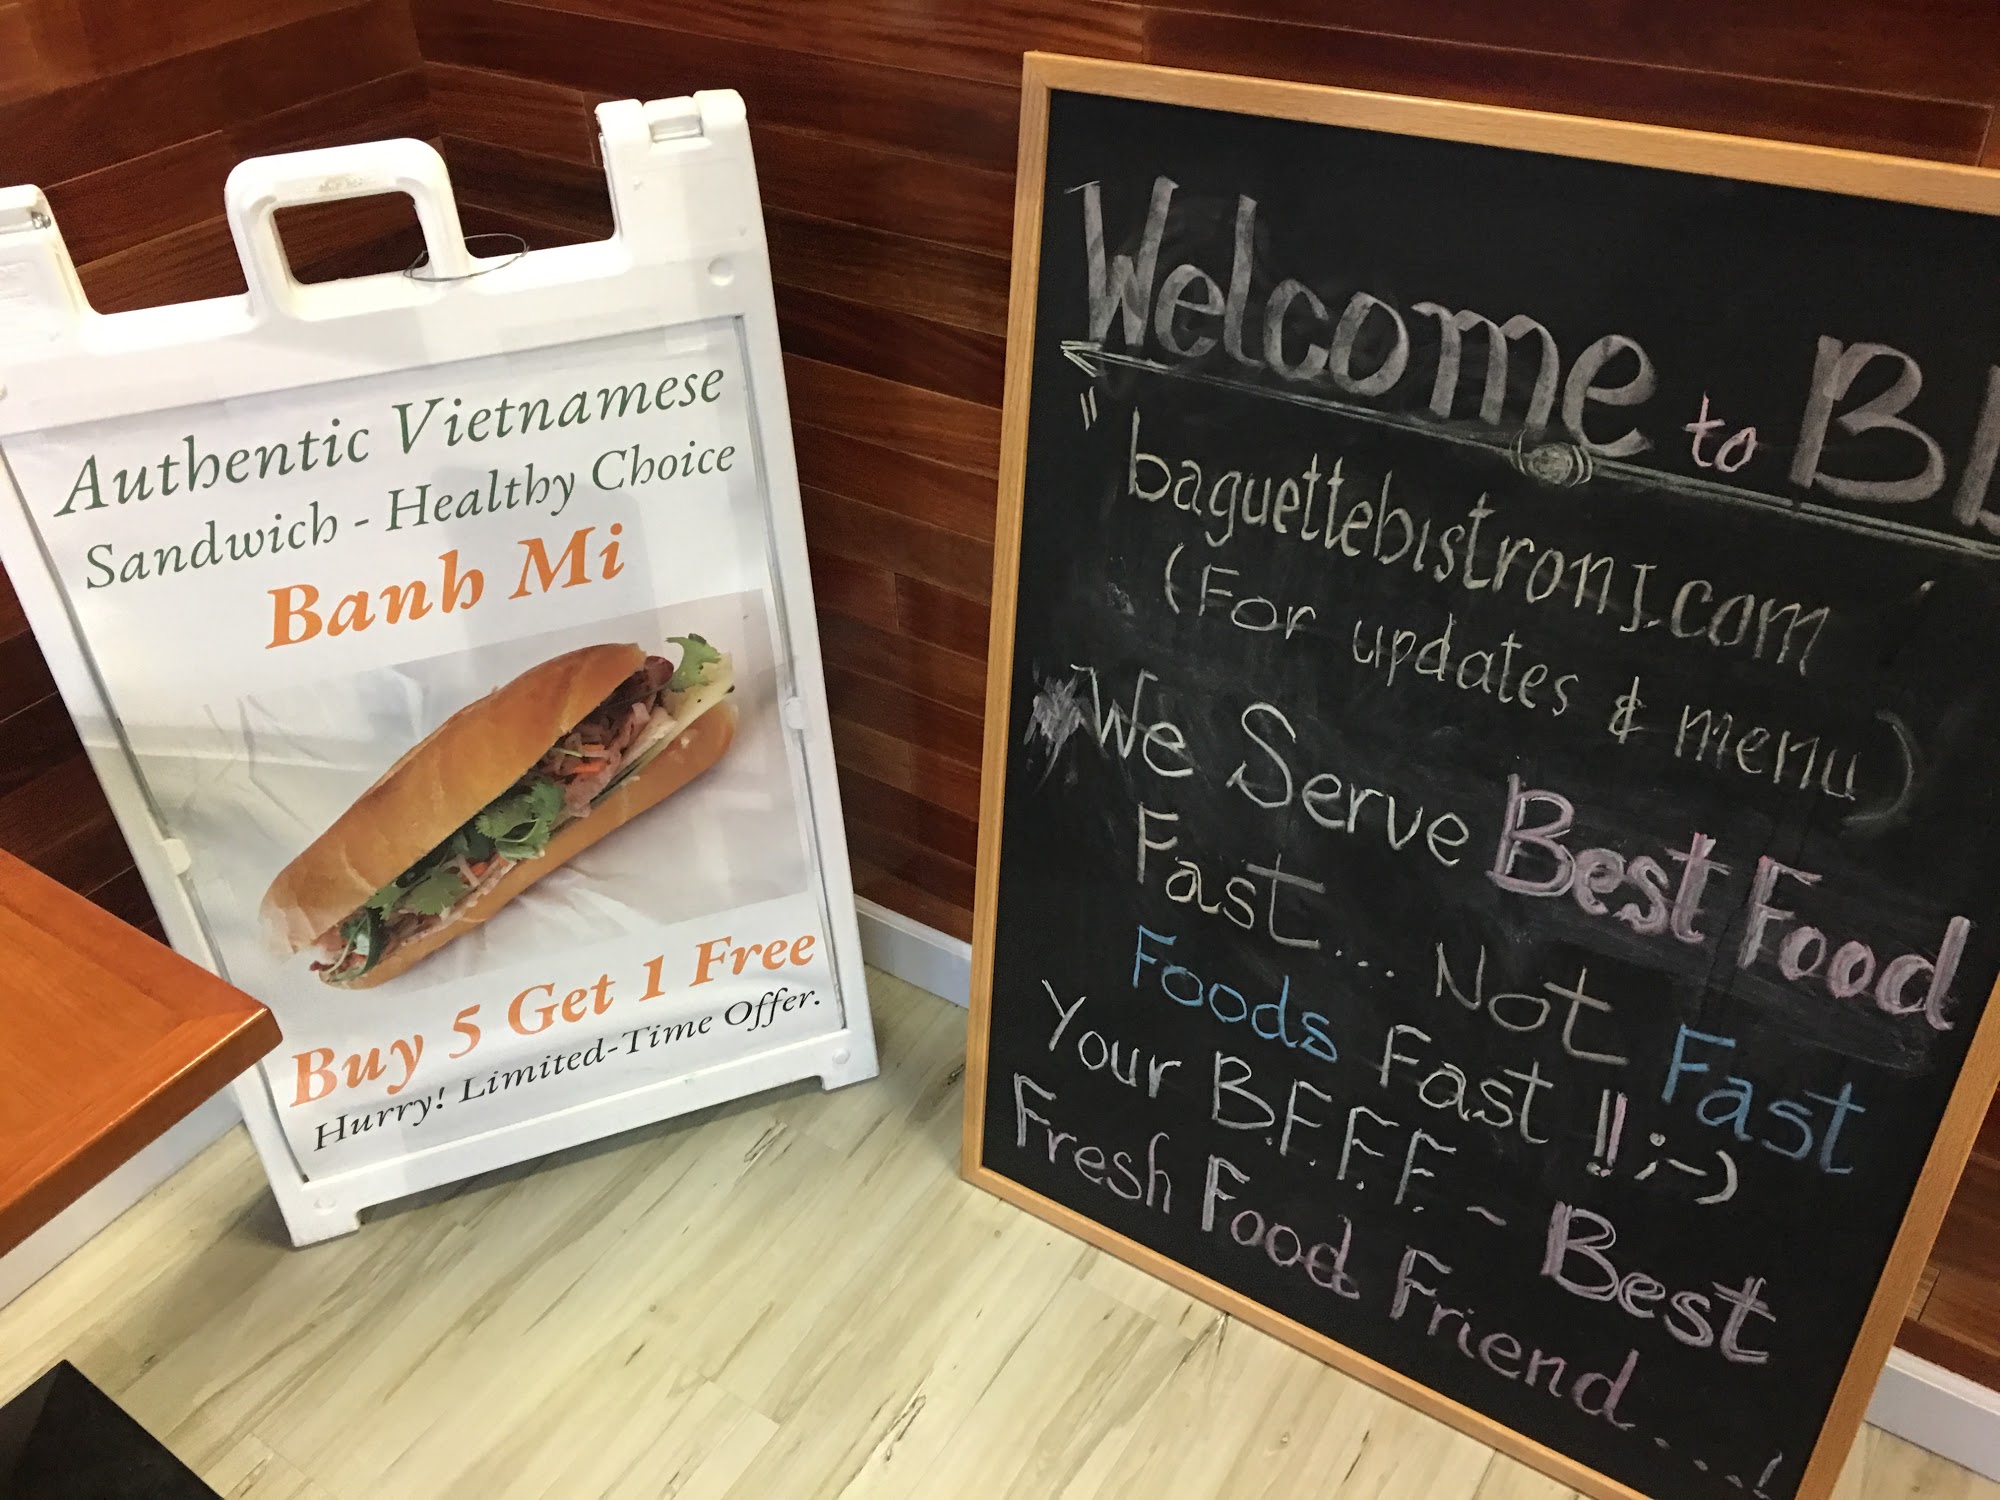 Authentic Vietnamese
Sandwich - Healthy Choice
Banh Mi
Buy 5 Get 1 Free
Hurry! Limited-Time Offer.
Welcome to
"baguettebistronj.com
(For updates & menu)
We Serve Best Food
Fast.... Not Fast
Foods Fast!! ;-)
Your B.F.F.F. ~ Best
Fresh Food Friend....!